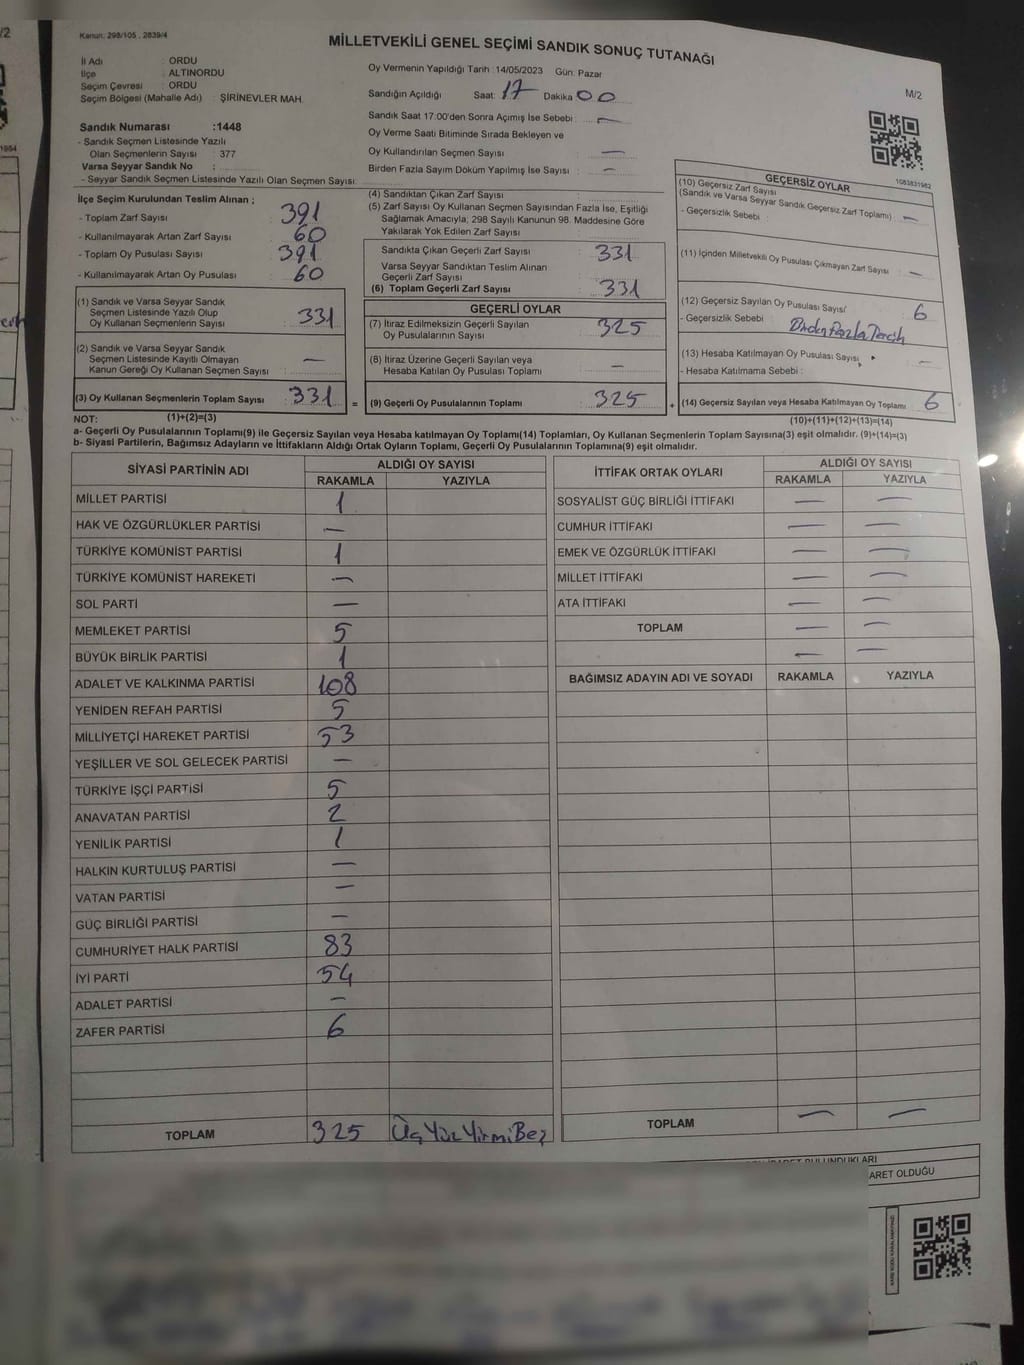 Kanun: 298/105, 2839/4
MİLLETVEKİLİ GENEL SEÇİMİ SANDIK SONUÇ TUTANAĞI
M/2
İl Adı : ORDU
İlçe : ALTINORDU
Seçim Çevresi : ORDU
Seçim Bölgesi (Mahalle Adı) : ŞİRİNEVLER MAH.
Sandık Numarası :1448
- Sandık Seçmen Listesinde Yazılı
Olan Seçmenlerin Sayısı : 377
Varsa Seyyar Sandık No :
- Seyyar Sandık Seçmen Listesinde Yazılı Olan Seçmen Sayısı:
Oy Vermenin Yapıldığı Tarih :14/05/2023 Gün: Pazar
Sandığın Açıldığı Saat: 17 Dakika 00
Sandık Saat 17:00'den Sonra Açımış İse Sebebi : —
Oy Verme Saati Bitiminde Sırada Bekleyen ve
Oy Kullandırılan Seçmen Sayısı : —
Birden Fazla Sayım Döküm Yapılmış İse Sayısı : —
İlçe Seçim Kurulundan Teslim Alınan ;
- Toplam Zarf Sayısı : 391
- Kullanılmayarak Artan Zarf Sayısı : 60
- Toplam Oy Pusulası Sayısı : 391
- Kullanılmayarak Artan Oy Pusulası : 60
(1) Sandık ve Varsa Seyyar Sandık
Seçmen Listesinde Yazılı Olup
Oy Kullanan Seçmenlerin Sayısı : 331
(2) Sandık ve Varsa Seyyar Sandık
Seçmen Listesinde Kayıtlı Olmayan
Kanun Gereği Oy Kullanan Seçmen Sayısı : —
(3) Oy Kullanan Seçmenlerin Toplam Sayısı : 331 =
(4) Sandıktan Çıkan Zarf Sayısı :
(5) Zarf Sayısı Oy Kullanan Seçmen Sayısından Fazla İse, Eşitliği
Sağlamak Amacıyla, 298 Sayılı Kanunun 98. Maddesine Göre
Yakılarak Yok Edilen Zarf Sayısı :
Sandıkta Çıkan Geçerli Zarf Sayısı : 331
Varsa Seyyar Sandıktan Teslim Alınan
Geçerli Zarf Sayısı :
(6) Toplam Geçerli Zarf Sayısı : 331
GEÇERLİ OYLAR
(7) İtiraz Edilmeksizin Geçerli Sayılan
Oy Pusulalarının Sayısı : 325
(8) İtiraz Üzerine Geçerli Sayılan veya
Hesaba Katılan Oy Pusulası Toplamı : —
(9) Geçerli Oy Pusulalarının Toplamı : 325 +
1083831982
GEÇERSİZ OYLAR
(10) Geçersiz Zarf Sayısı
(Sandık ve Varsa Seyyar Sandık Geçersiz Zarf Toplamı) : —
- Geçersizlik Sebebi :
(11) İçinden Milletvekili Oy Pusulası Çıkmayan Zarf Sayısı : —
(12) Geçersiz Sayılan Oy Pusulası Sayısı 6
- Geçersizlik Sebebi : Birden Fazla Tercih
(13) Hesaba Katılmayan Oy Pusulası Sayısı : —
- Hesaba Katılmama Sebebi :
(14) Geçersiz Sayılan veya Hesaba Katılmayan Oy Toplamı : 6
NOT: (1)+(2)=(3) (10)+(11)+(12)+(13)=(14)
a- Geçerli Oy Pusulalarının Toplamı(9) ile Geçersiz Sayılan veya Hesaba katılmayan Oy Toplamı(14) Toplamları, Oy Kullanan Seçmenlerin Toplam Sayısına(3) eşit olmalıdır. (9)+(14)=(3)
b- Siyasi Partilerin, Bağımsız Adayların ve İttifakların Aldığı Ortak Oyların Toplamı, Geçerli Oy Pusulalarının Toplamına(9) eşit olmalıdır.
SİYASİ PARTİNİN ADI ALDIĞI OY SAYISI
RAKAMLA YAZIYLA
MİLLET PARTİSİ 1
HAK VE ÖZGÜRLÜKLER PARTİSİ —
TÜRKİYE KOMÜNİST PARTİSİ 1
TÜRKİYE KOMÜNİST HAREKETİ —
SOL PARTİ —
MEMLEKET PARTİSİ 5
BÜYÜK BİRLİK PARTİSİ 1
ADALET VE KALKINMA PARTİSİ 108
YENİDEN REFAH PARTİSİ 5
MİLLİYETÇİ HAREKET PARTİSİ 53
YEŞİLLER VE SOL GELECEK PARTİSİ —
TÜRKİYE İŞÇİ PARTİSİ 5
ANAVATAN PARTİSİ 2
YENİLİK PARTİSİ 1
HALKIN KURTULUŞ PARTİSİ —
VATAN PARTİSİ —
GÜÇ BİRLİĞİ PARTİSİ —
CUMHURİYET HALK PARTİSİ 83
İYİ PARTİ 54
ADALET PARTİSİ —
ZAFER PARTİSİ 6
TOPLAM 325 Üç Yüz Yirmi Beş
İTTİFAK ORTAK OYLARI ALDIĞI OY SAYISI
RAKAMLA YAZIYLA
SOSYALİST GÜÇ BİRLİĞİ İTTİFAKI — —
CUMHUR İTTİFAKI — —
EMEK VE ÖZGÜRLÜK İTTİFAKI — —
MİLLET İTTİFAKI — —
ATA İTTİFAKI — —
TOPLAM — —
— —
BAĞIMSIZ ADAYIN ADI VE SOYADI RAKAMLA YAZIYLA
TOPLAM — —
ARET OLDUĞU